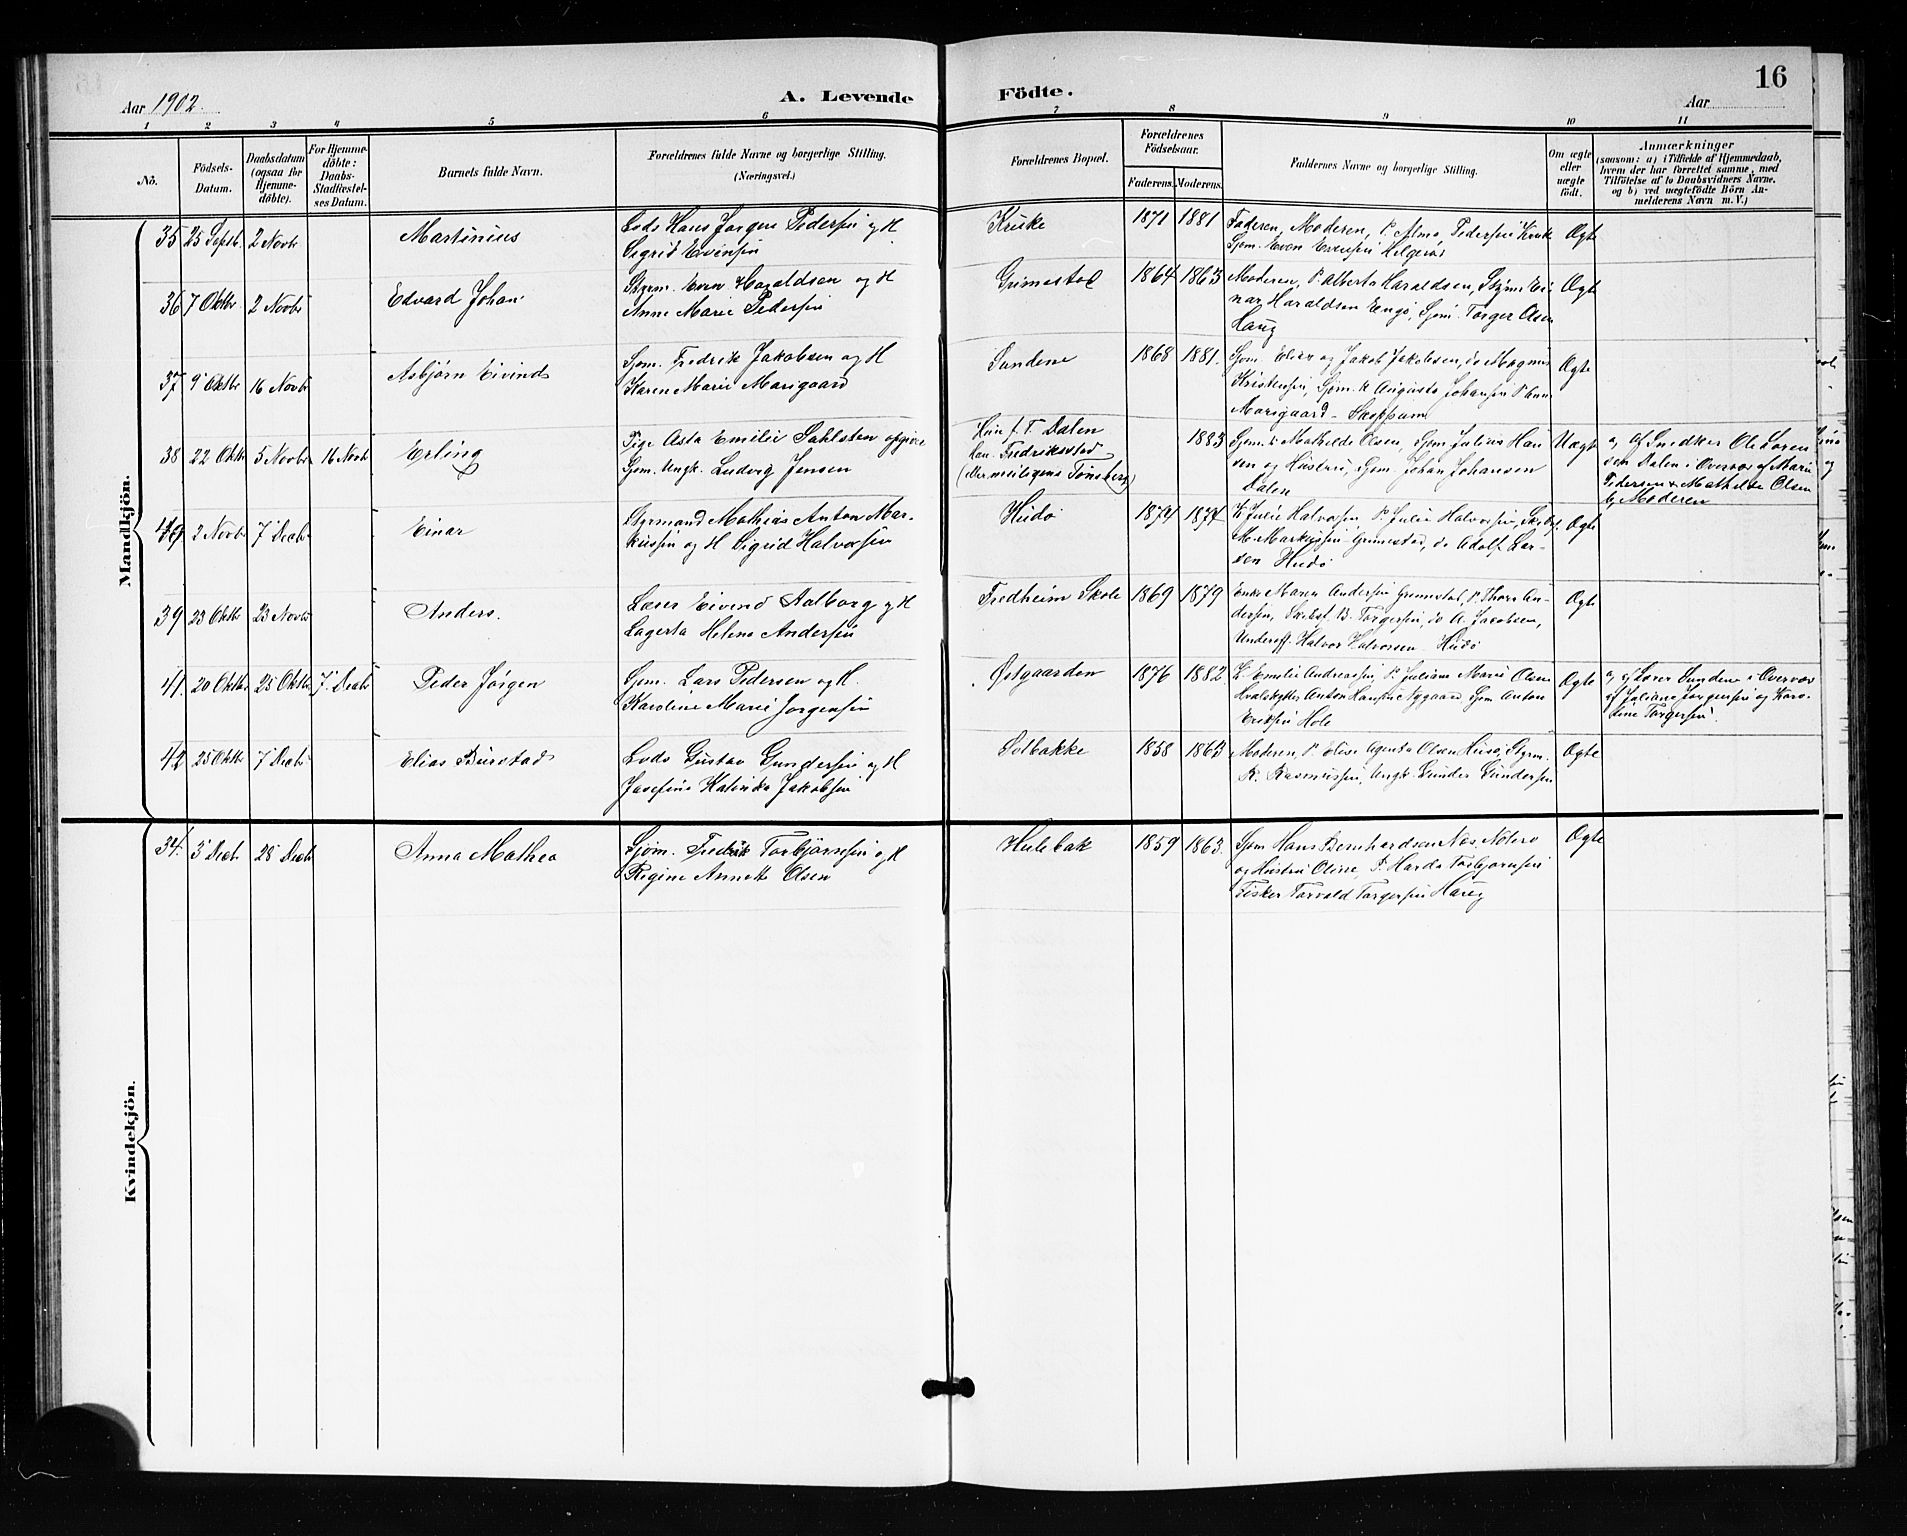 Aar 1902.
A. Levende Födte.
16
Aar
1 2 3 4 5 6 7 8 9 10 11
No.
Födsels-Datum.
Daabsdatum (ogsaa for Hjemme-döbte).
For Hjemme-döbte: Daabs-Stadfæstel-ses Datum.
Barnets fulde Navn.
Forældrenes fulde Navne og borgerlige Stilling. (Næringsvei.)
Forældrenes Bopæl.
Forældrenes Födselsaar.
Faderens. Moderens.
Faddernes Navne og borgerlige Stilling.
Om ægte eller uægte födt.
Anmærkninger
(saasom: a) i Tilfælde af Hjemmedaab,
hvem der har forrettet samme, med
Tilföielse af to Daabsvidners Navne,
og b) ved uægtefödte Börn An-
melderens Navn m. V.)
Mandkjön.
35 25 Septb. 2 Novbr Martinius
Lods Hans Jørgen Pedersen og H
Sigrid Evensen
Kruke 1871 1881
Faderen, Moderen, P. Alma Pedersen Kruke
Sjøm. Even Evensen Helgerød
Ægte
36 7 Oktbr 2 Novbr Edvard Johan
Styrm. Even Haraldsen og H
Anne Marie Pedersen
Grimestad 1864 1863
Moderen, P. Alberta Haraldsen, Styrm Ei-
nar Haraldsen Engø, Sjøm. Torger Olsen
Haug
Ægte
37 9 Oktbr 16 Novbr Asbjørn Eivind
Sjøm. Fredrik Jakobsen og H
Karen Marie Marsgaard
Sundene 1868 1881.
Sjøm. Elise og Jakob Jakobsen, do Magnus
Kristensen, Sjøm. k Augusta Johansen P. Anna
Marsgaard - Skoppum
Ægte
38 22 Oktbr 5 Novbr 16 Novbr Erling
Pige Asta Emilie Sahlsten opgiver
Sjøm. Ungk. Ludvig Jensen
Hun f. T. Dalen
Han. Fredriksstad
(Nu muligens Tønsberg)
1883
Sjøm. k Mathilde Olsen, Sjøm Julius Han
sen og Hustru, Sjøm. Johan Johansen
Dalen
Uægt
a, af Snedker Ole Loren
sen Dalen i Overvær af Marie
Pedersen & Mathilde Olsen
b, Moderen
2 Novbr 7 Decbr Einar
Styrmand Mathias Anton Mar-
kussen og H Sigrid Halvorsen
Hudø 1874 1874
K. Julie Halvorsen, P. Julie Halvorsen, Skibsf.
M. Markussen Grimestad, do Adolf Lar-
sen Hudø
Ægte
39 23 Oktbr 23 Novbr Anders.
Lærer Eivind Aalborg og H
Lagerta Helene Andersen
Fredheim Skole 1869 1879
Enke Maren Andersen Grimestad, P. Thora An-
dersen, Skibsf. B. Torgersen, do A. Jacobsen,
Underoff. Halvor Halvorsen Hudø
Ægte
41. 20 Oktbr 25 Oktbr 7 Decbr Peder Jørgen
Sjøm. Lars Pedersen og H.
Karoline Marie Jørgensen
Østgaarden 1876 1882.
K. Emilie Andreassen, P. Juliane Marie Olsen
Hvalskytter Anton Hansen Nygaard Sjøm Anton
Eriksen Hole
Ægte
a, af Lærer Sundene i Overvær
af Juliane Jørgensen og Karo-
line Torgersen.
42 25 Oktbr 7 Decbr Elias Burstad
Lods Gustav Gundersen og H
Josefine Katinka Jakobsen
Solbakke 1858 1863
Moderen, P. Elise Agenta Olsen Husø, Styrm.
K. Rasmussen, Ungk. Gunder Gundersen
Ægte
Kvindekjön.
34. 3 Decbr 28 Decbr Anna Mathea
Sjøm. Fredrik Torbjørnsen og H
Regine Annette Olsen
Hulebak 1859 1863.
Sjøm Hans Bernhardsen Nes Nøterø
og Hustru Oline, P. Harda Torbjørnsen
Fisker Torvald Torgersen Haug
Ægte